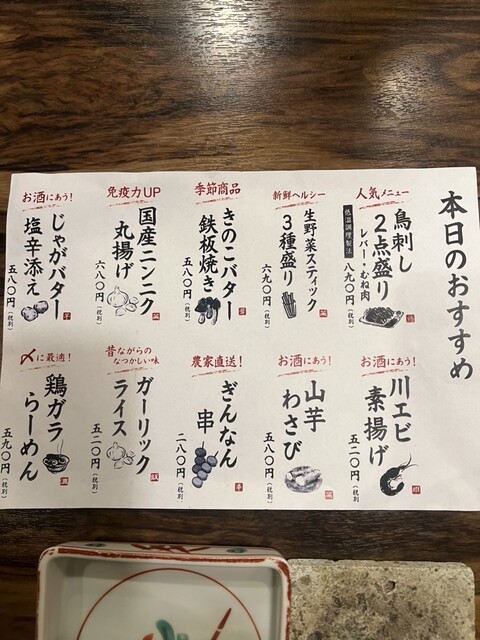 本日のおすすめ
人気メニュー
鳥刺し
2点盛り
レバー・むね肉
低温調理製法
八九〇円(税別)
新鮮ヘルシー
生野菜スティック
3種盛り
六九〇円(税別)
季節商品
きのこバター
鉄板焼き
五八〇円(税別)
免疫力UP
国産ニンニク
丸揚げ
六八〇円(税別)
お酒にあう!
じゃがバター
塩辛添え
五八〇円(税別)
お酒にあう!
川エビ
素揚げ
五二〇円(税別)
お酒にあう!
山芋
わさび
五八〇円(税別)
農家直送!
ぎんなん
串
二八〇円(税別)
昔ながらの
なつかしい味
ガーリック
ライス
五二〇円(税別)
〆に最適!
鶏ガラ
らーめん
五九〇円(税別)